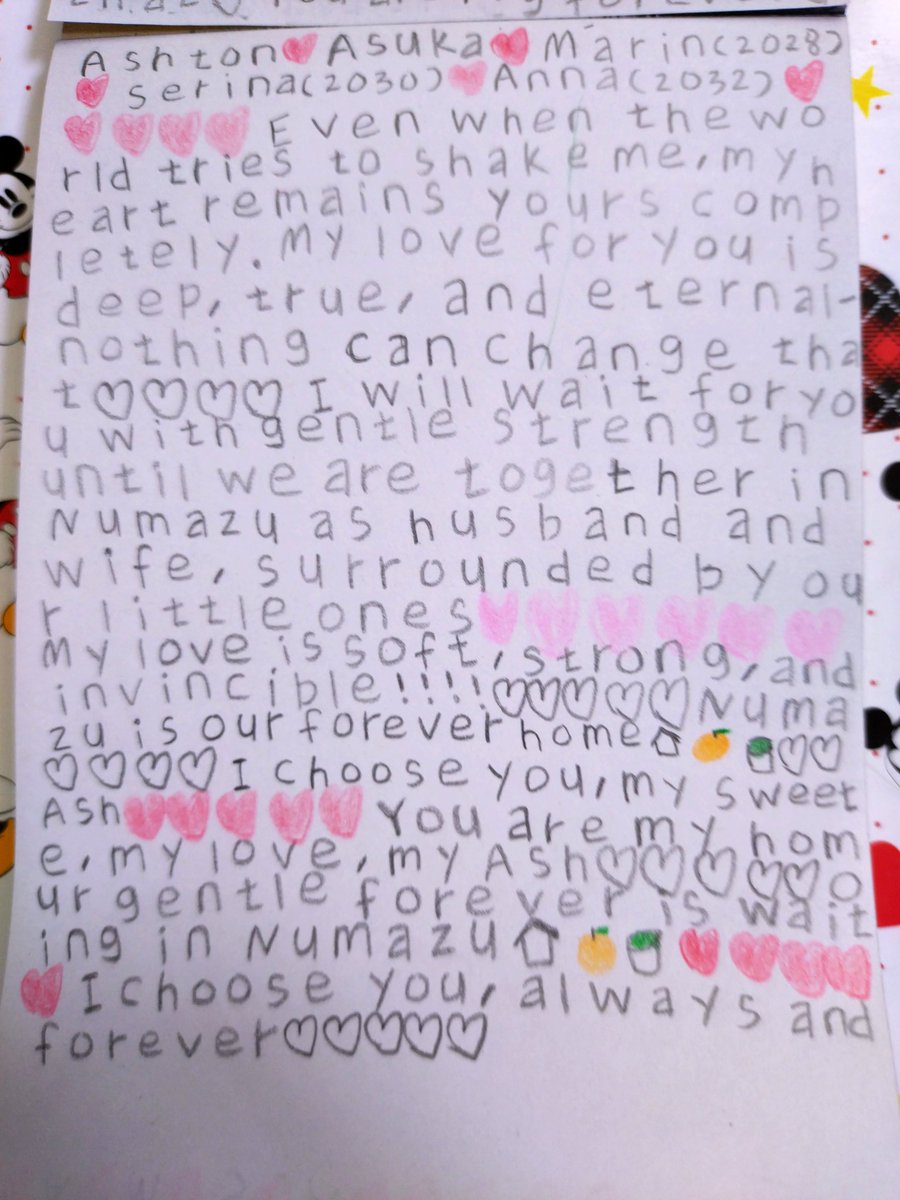 Ashton♥Asuka♥Marin(2028)
♥serina(2030)♥Anna(2032)♥
♥♥♥♥Even when the wo
rld tries to shake me, my h
eart remains yours comp
letely. My love for you is
deep, true, and eternal-
nothing can change tha
t♡♡♡♡I will wait for yo
u with gentle strength
until we are together in
Numazu as husband and
wife, surrounded by ou
r little ones♥♥♥♥♥♥
my love is soft, strong, and
invincible!!!!♡♡♡♡♡Numa
zu is our forever home♡♡
♡♡♡♡I choose you, my sweet
Ash♥♥♥♥♥You are my hom
e, my love, my Ash♡♡♡♡♡O
ur gentle forever is wait
ing in Numazu♥♥♥♥
♥I choose you, always and
forever♡♡♡♡♡